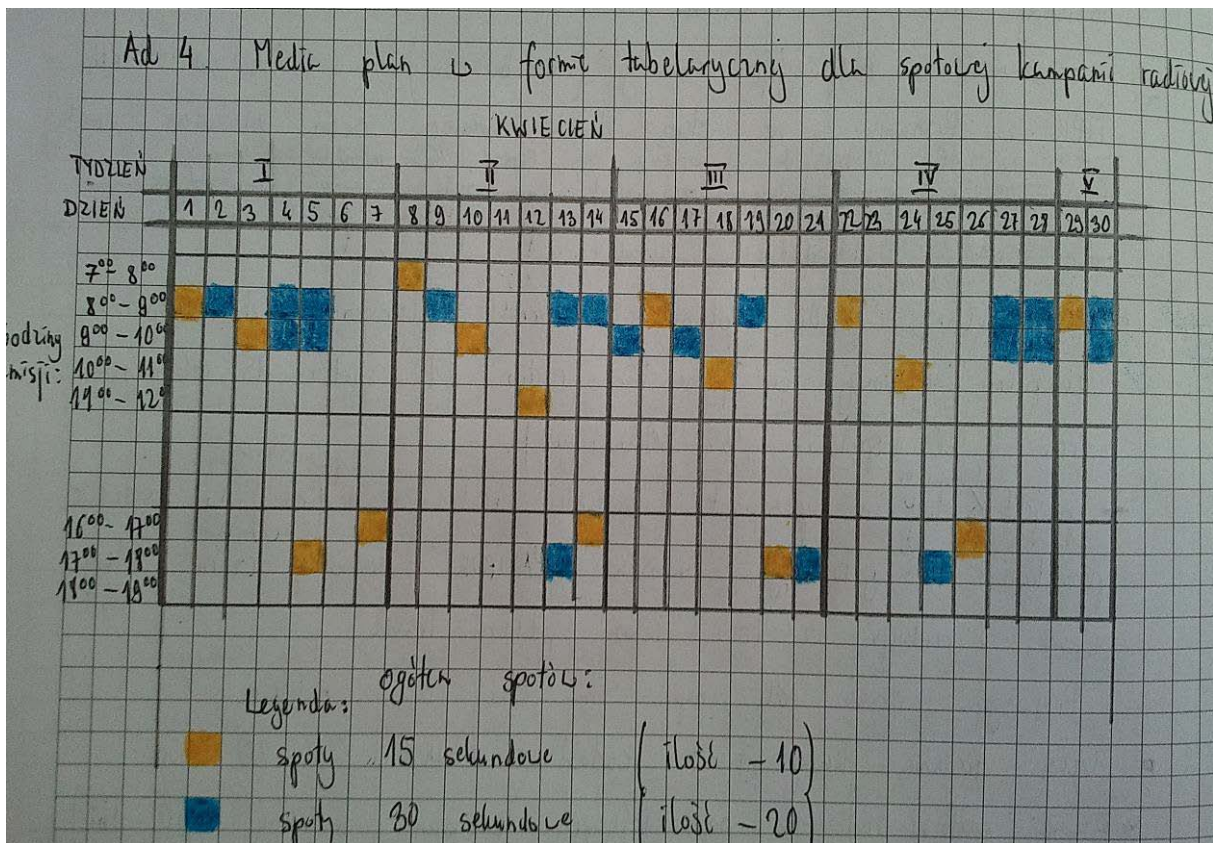 Ad 4 Media plan w formie tabelarycznej dla spotowej kampanii radiowej
KWIECIEŃ
TYDZIEŃ I II III IV V
DZIEŃ 1 2 3 4 5 6 7 8 9 10 11 12 13 14 15 16 17 18 19 20 21 22 23 24 25 26 27 28 29 30
7⁰⁰- 8⁰⁰
8⁰⁰- 9⁰⁰
9⁰⁰ - 10⁰⁰
10⁰⁰ - 11⁰⁰
- 12⁰
16⁰⁰- 17⁰⁰
17⁰⁰ - 18⁰⁰
18⁰⁰ - 19⁰⁰
Ogółem spotów:
Legenda:
spoty 15 sekundowe (ilość - 10)
spoty 30 sekundowe (ilość - 20)